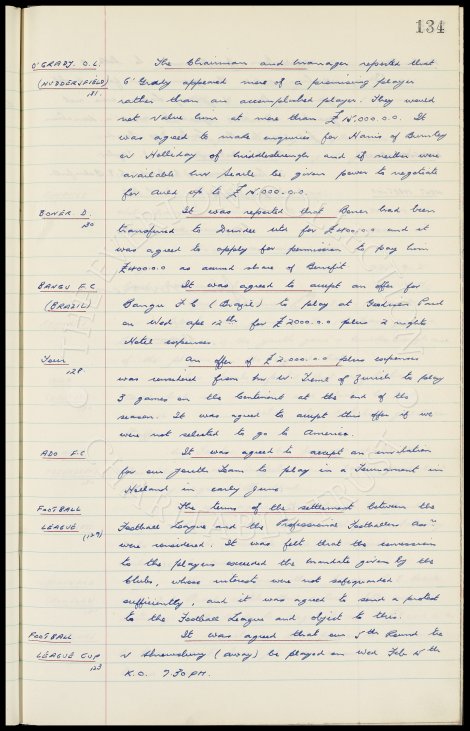 134
O'GRADY. O.L. The Chairman and Manager reported that
(HUDDERSFIELD) O'Grady appeared more of a promising player
131. rather than an accomplished player. They would
not value him at more than £
was agreed to make enquiries for Harris of Burnley
or Holliday of Middlesbrough and if neither were
available Mr Searle be given power to negotiate
for Ared up to £
BONER D. It was reported that Boner had been
130 transferred to Dundee Utd for £ and it
was agreed to apply for permission to pay him
£400.0.0 as accrued share of Benefit
BANGU F.C It was agreed to accept an offer for
(BRAZIL) Bangu F C (Brazil) to play at Goodison Park
on Wed Apl 12th for £2000.0.0 plus 2 nights
Hotel expenses.
TOUR An offer of £2.000.0.0 plus expenses
128. was considered from Mr W. of Zurich to play
3 games on the Continent at the end of the
season. It was agreed to accept this offer if we
were not selected to go to America.
ADO F.C It was agreed to accept an invitation
for our Youth Team to play in a Tournament in
Holland in early June.
FOOTBALL The terms of the settlement between the
LEAGUE Football League and the Professional Footballers Assn
(129) were considered. It was felt that the concession
to the players exceeded the mandate given by the
Clubs, whose interest were not safeguarded
sufficiently, and it was agreed to send a protest
to the Football League and object to this.
FOOTBALL It was agreed that our 5th Round tie
LEAGUE CUP v Shrewsbury (away) be played on Wed Feb
123 K.O. 7.30 PM.